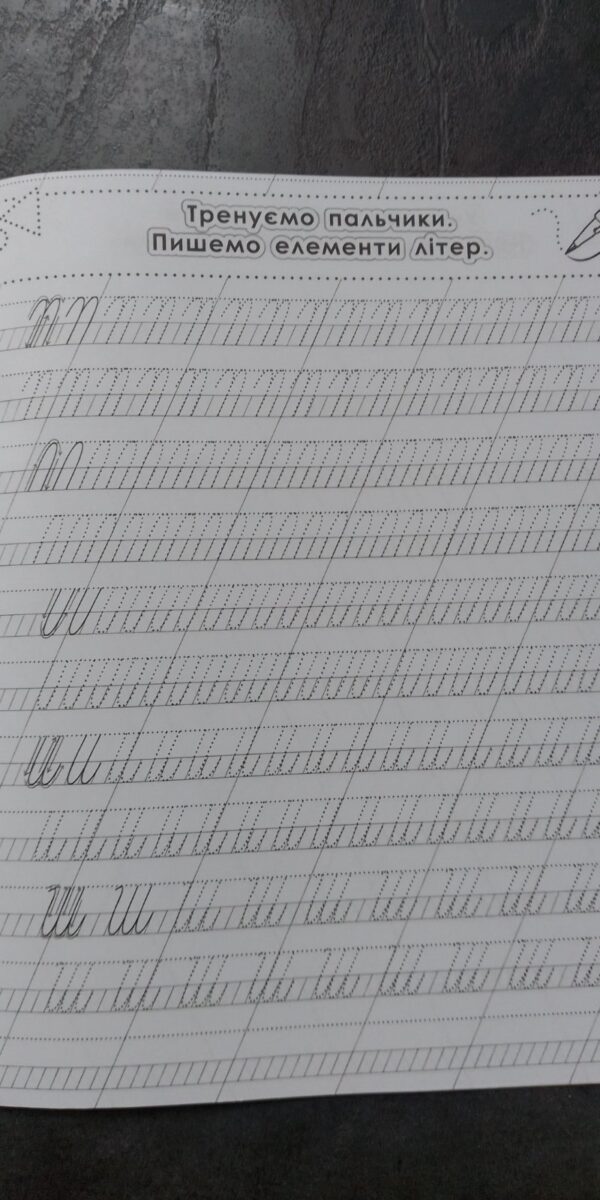 Тренуємо пальчики.
Пишемо елементи літер.